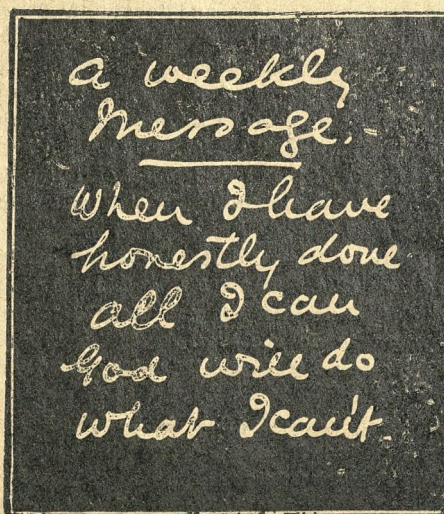 a weekly
Message.-
When I have
honestly done
all I can
God will do
what I can't.